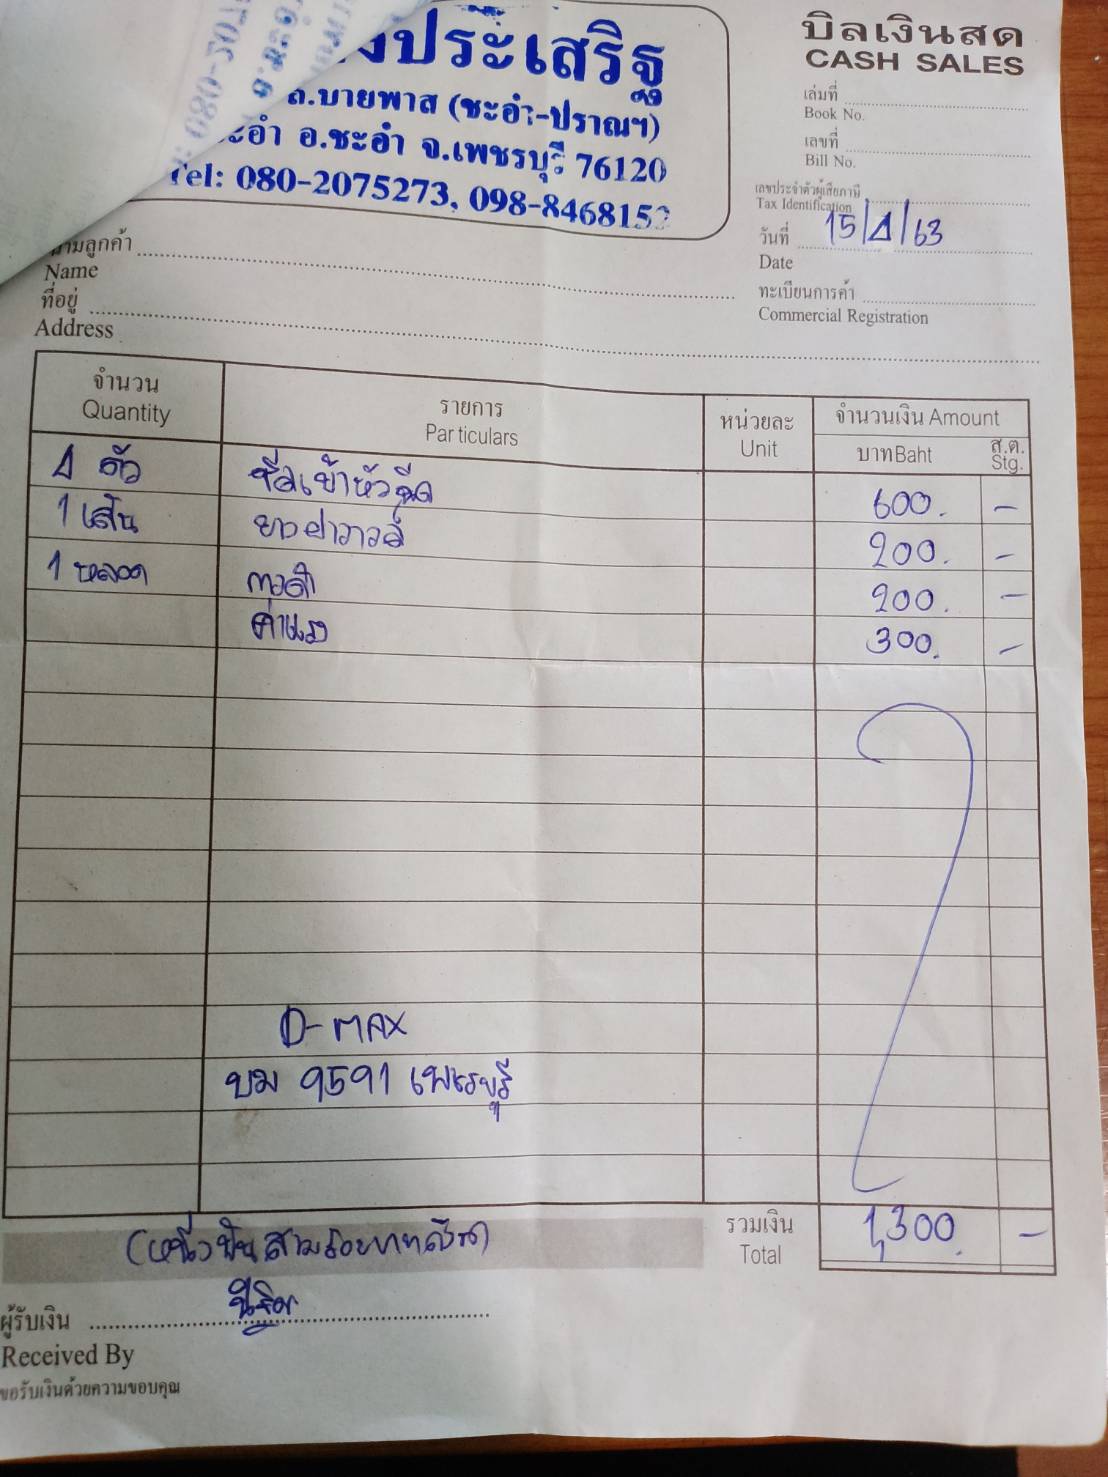 งประเสริฐ
ถ.บายพาส (ชะอำ-ปราณฯ)
ะอำ อ.ชะอำ จ.เพชรบุรี 76120
Tel: 080-2075273, 098-8468152
บิลเงินสด
CASH SALES
เล่มที่
Book No.
เลขที่
Bill No.
เลขประจำตัวผู้เสียภาษี
Tax Identification
วันที่ 15/4/63
Date
ทะเบียนการค้า
Commercial Registration
นามลูกค้า
Name
ที่อยู่
Address
จำนวน รายการ หน่วยละ จำนวนเงิน Amount
Quantity Particulars Unit บาท Baht ส.ต. Stg.
4 ตัว ซีลเบ้าหัวฉีด 600. -
1 เส้น ยางฝาวาวล์ 200. -
1 หลอด กาวดำ 200. -
ค่าแรง 300. -
D-MAX
บม 9591 เพชรบุรี
(หนึ่งพันสามร้อยบาทถ้วน) รวมเงิน 1,300. -
Total
ผู้รับเงิน
Received By
ขอรับเงินด้วยความขอบคุณ